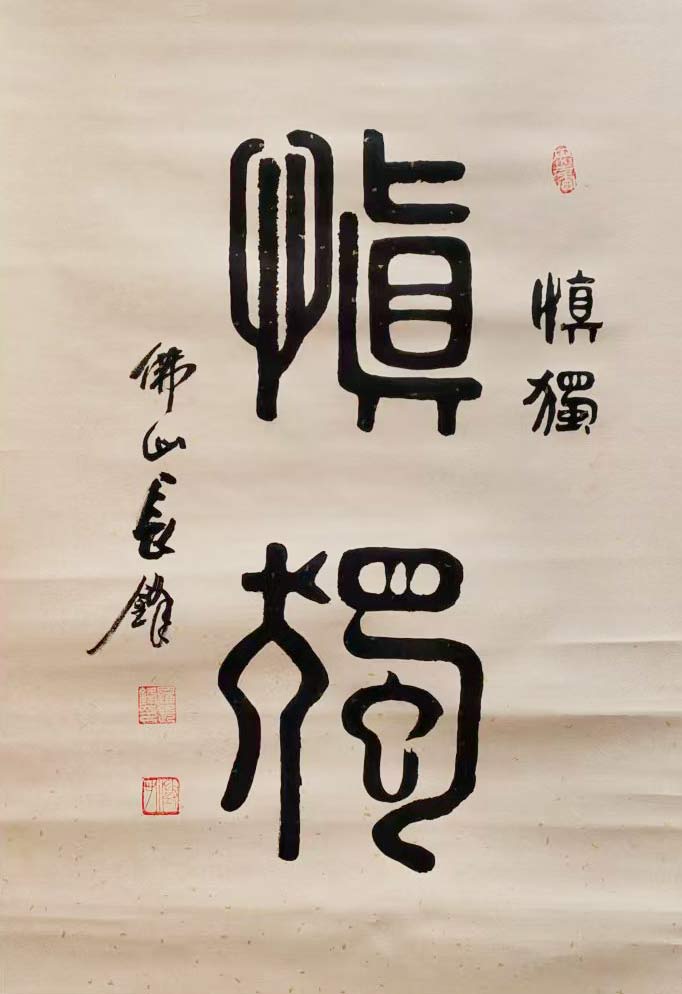 慎獨
慎獨
佛山長鋒